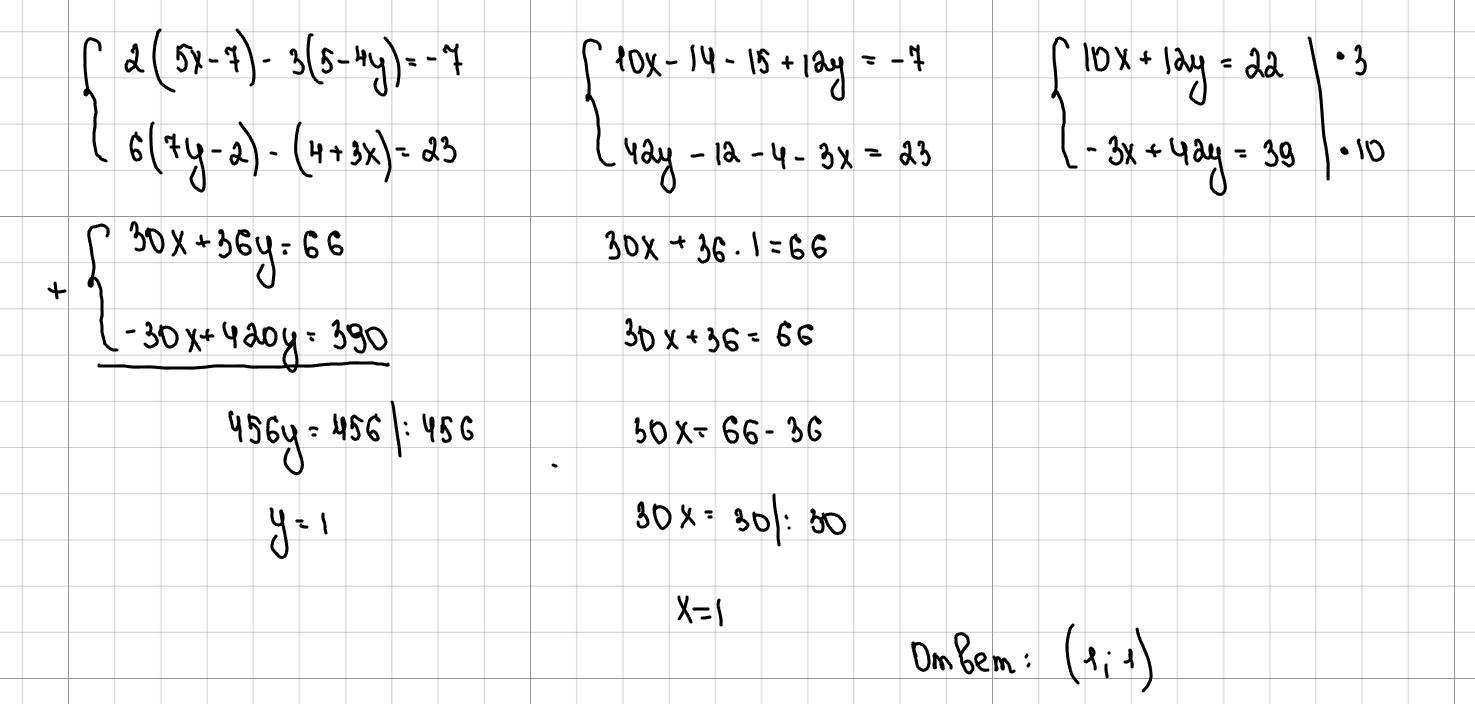 2(5x-7) - 3(5-4y) = -7
6(7y-2) - (4+3x) = 23
10x - 14 - 15 + 12y = -7
42y - 12 - 4 - 3x = 23
10x + 12y = 22 | · 3
- 3x + 42y = 39 | · 10
30x + 36y = 66
+
-30x + 420y = 390
456y = 456 | : 456
y = 1
30x + 36 · 1 = 66
30x + 36 = 66
30x = 66 - 36
30x = 30 | : 30
x = 1
Ответ: (1; 1)